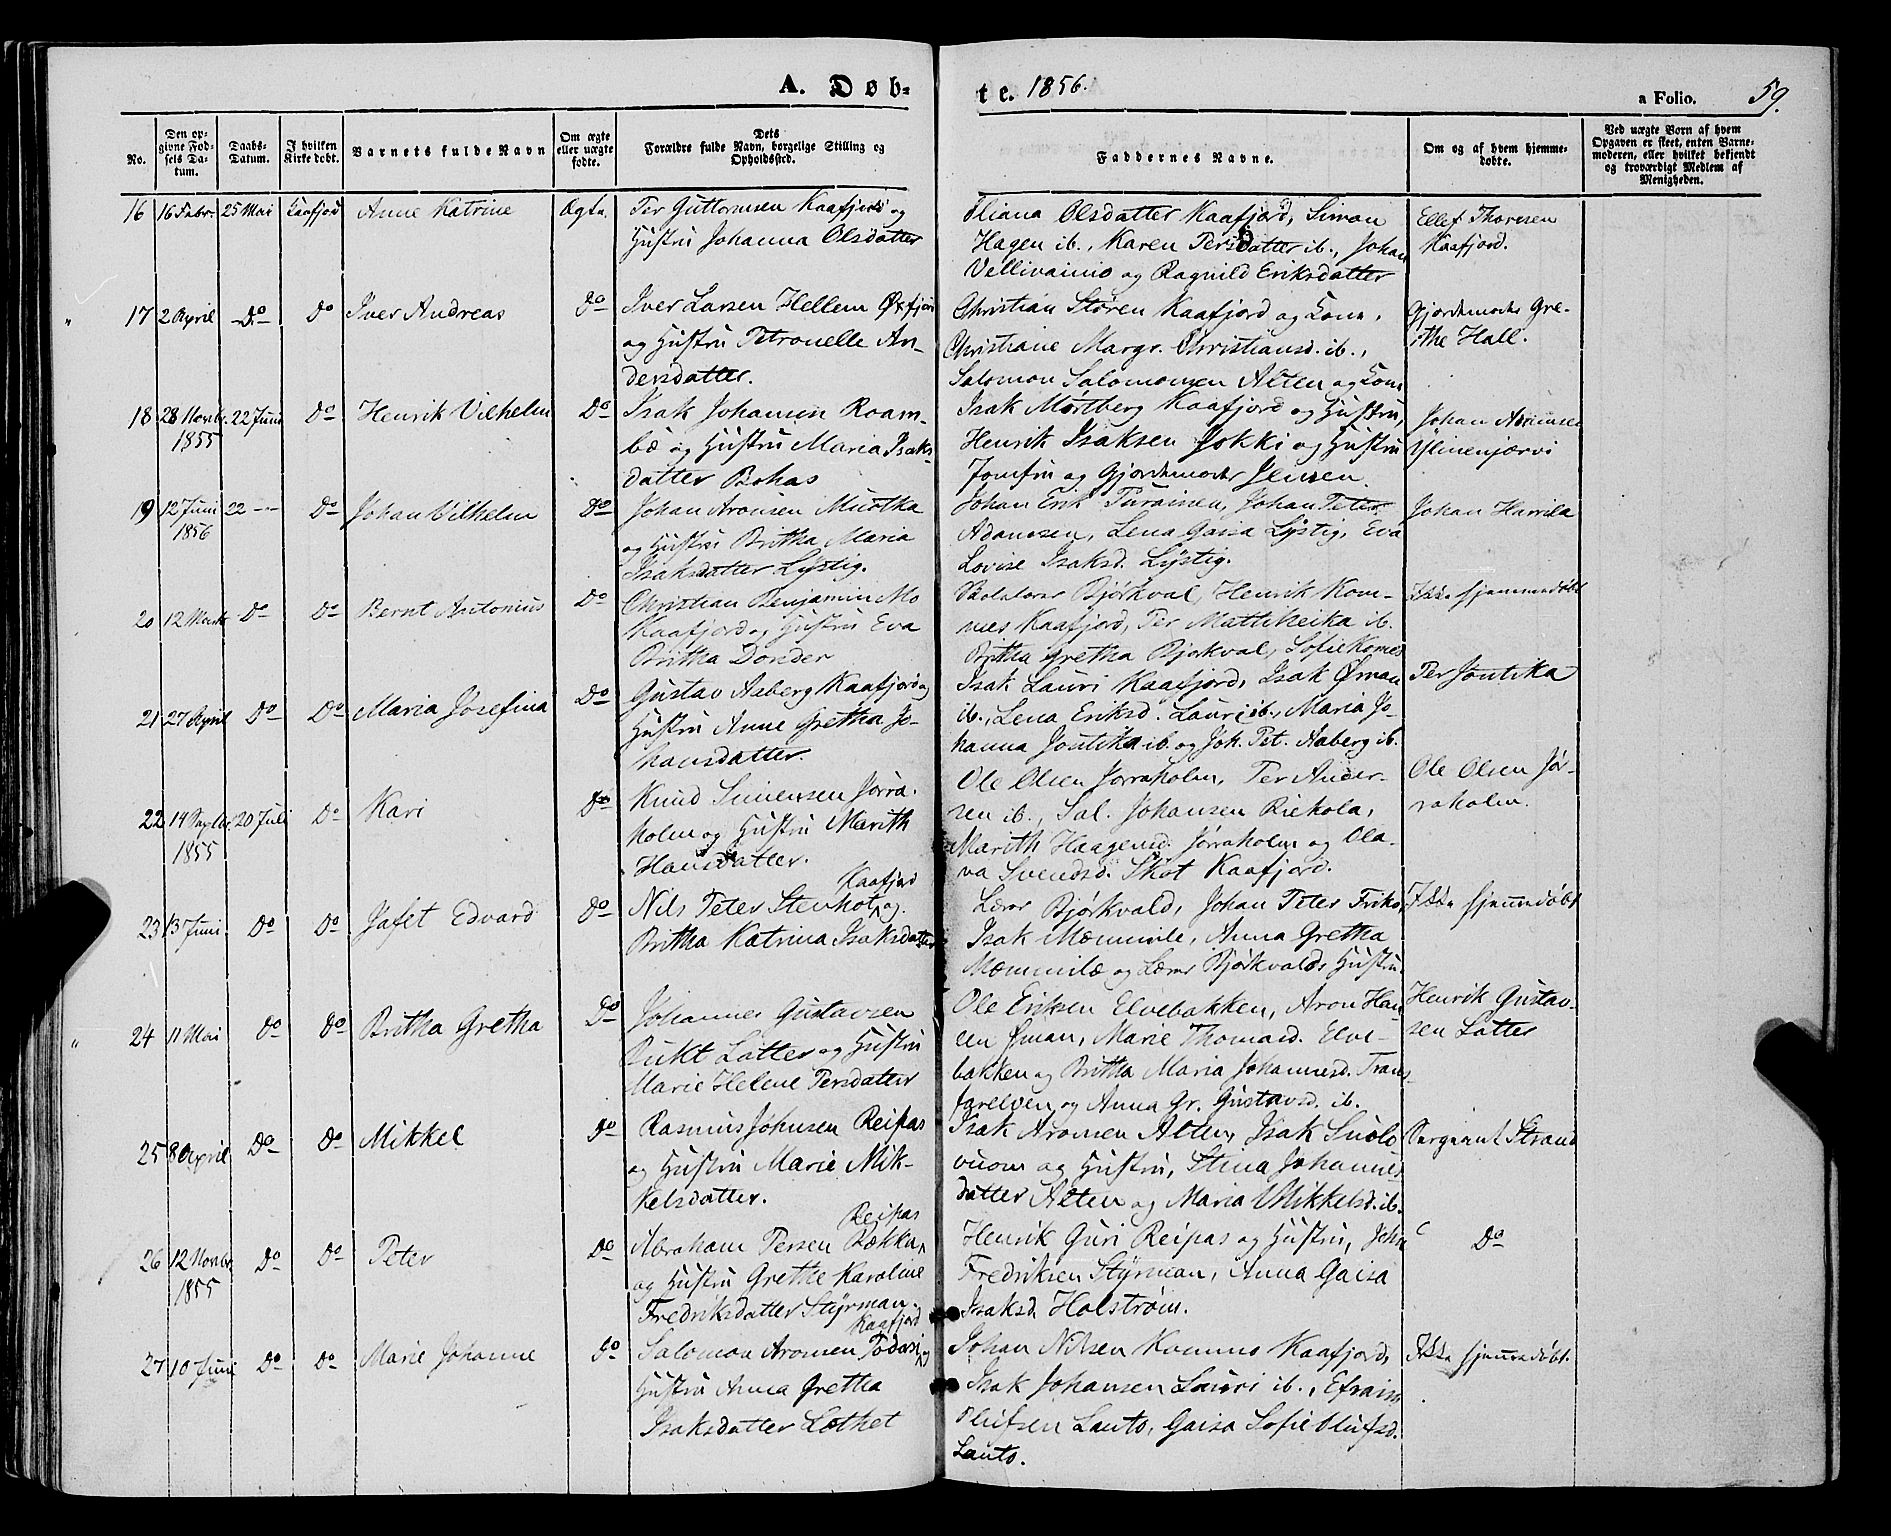 A. Døb-
te. 1856.
a Folio. 59.
No.
Den op-
givne Fød-
sels Da-
tum.
Daabs-
Datum.
I hvilken
Kirke døbt.
Barnets fulde Navn
Om ægte
eller uægte
fødte.
Dets
Forældre fulde Navn, borgelige Stilling og
Opholdssted.
Faddernes Navne.
Om og af hvem hjemme-
døbte.
Ved uægte Børn af hvem
Opgaven er skeet, enten Barne-
moderen, eller hvilket bekjendt
og troværdigt Medlem af
Menigheden.
16 16 Febr. 25 Mai Kaafjord Anne Katrine Ægte.
Per Guttormsen Kaafjord og
Hustru Johanna Olsdatter
Oliana Olsdatter Kaafjord, Simon
Hagen ib., Karen Persdatter ib., Johan
Vellivainio og Ragnild Eriksdatter
Ellef Thoresen
Kaafjord.
17 2 April Do Do Iver Andreas Do
Iver Larsen Hellem Øxfjord
og Hustru Petronelle An-
dersdatter.
Christian Støren Kaafjord og Kone,
Christiane Margr. Christiansd. ib.,
Salomon Salomonsen Alten og Kone
Gjordemoder Gre-
the Hall.
18 28 Novbr. 1855 22 Juni Do Henrik Vilhelm Do
Isak Johansen Raam-
bæ og Hustru Maria Isaks-
datter Bohas
Isak Mortberg Kaafjord og Hustru,
Henrik Isaksen Jokki og Hustru
Jomfru og Gjordemoder Jensen.
Johan
Ylinenjærvi
19 12 Juni 1856 22 — Do Johan Vilhelm Do
Johan Aronsen Muotka
og Hustru Britha Maria
Isaksdatter Lystig.
Johan Erik Turainen, Johan Peter
Adamsen, Lena Gaisa Lystig, Eva
Lovise Isaksd. Lystig.
Johan Harrila
20 12 Marts Do Do Bernt Antonius Do
Christian Benjamin Mo
Kaafjord og Hustru Eva
Britha Donder
Skolelærer Bjørkval, Henrik Kom-
mes Kaafjord, Per Mattiheika ib.
Britha Gretha Bjørkval, Sofie Komes
Ikke hjemmedøbt
21 27 April Do Do Maria Josefina Do
Gustav Asberg Kaafjord og
Hustru Anne Gretha Jo-
hansdatter.
Isak Lauri Kaafjord, Isak Øman
ib., Lena Eriksd. Lauri ib., Maria Jo-
hanna Jontika ib. og Joh. Pet. Aaberg ib.
Per Jontika
22 14 Septbr. 1855 20 Juli Do Kari Do
Knud Simensen Jorra-
holm og Hustru Marith
Hansdatter.
Ole Olsen Jorraholm, Per Ander-
sen ib., Sal. Johansen Riekola,
Marith Haagensd. Jorraholm og Ola-
va Svendsd. Skot Kaafjord.
Ole Olsen Jor-
raholm.
23 13 Juni Do Do Jafet Edvard Do
Kaafjord
Nils Peter Stenhot og
Britha Katrina Isaksdatter
Lærer Bjørkvald, Johan Peter Friko,
Isak Mæmmile, Anna Gretha
Mæmmilæ og Lærer Bjørkvalds Hustru.
Ikke hjemmedøbt
24 11 Mai Do Do Britha Gretha Do
Johannes Gustavsen
Pukt Latter og Hustru
Marie Helene Persdatter
Ole Eriksen Elvebakken, Aron Han-
sen Øman, Marie Thomasd. Elve-
bakken og Britha Maria Johannesd. Tran-
farelven og Anna Gr. Gustavsd. ib.
Henrik Gustav-
sen Latter
25 8 April Do Do Mikkel Do
Rasmus Johnsen Reipas
og Hustru Marie Mik-
kelsdatter.
Isak Aronsen Alten, Isak Suolo
vuom og Hustru, Stina Johannes
datter Alten og Maria Mikkelsd. ib.
Sergeant Strand
26 12 Novbr. 1855 Do Do Peter Do
Reipas
Abraham Persen Bækku,
og Hustru Grethe Karoline
Fredriksdatter Styrman.
Henrik Guri Reipas og Hustru, John
Fredriksen Styrman, Anna Gaisa
Isaksd. Holstrøm.
Do
27 10 Juni Do Do Marie Johanne Do
Kaafjord
Salomon Aronsen Todori og
Hustru Anna Gretha
Isaksdatter Lothet
Johan Nilsen Kommo Kaafjord,
Isak Johansen Lauri ib., Efraim
Olufsen Lauto, Gaisa Sofie Olufsd.
Lauto.
Ikke hjemmedøbt.